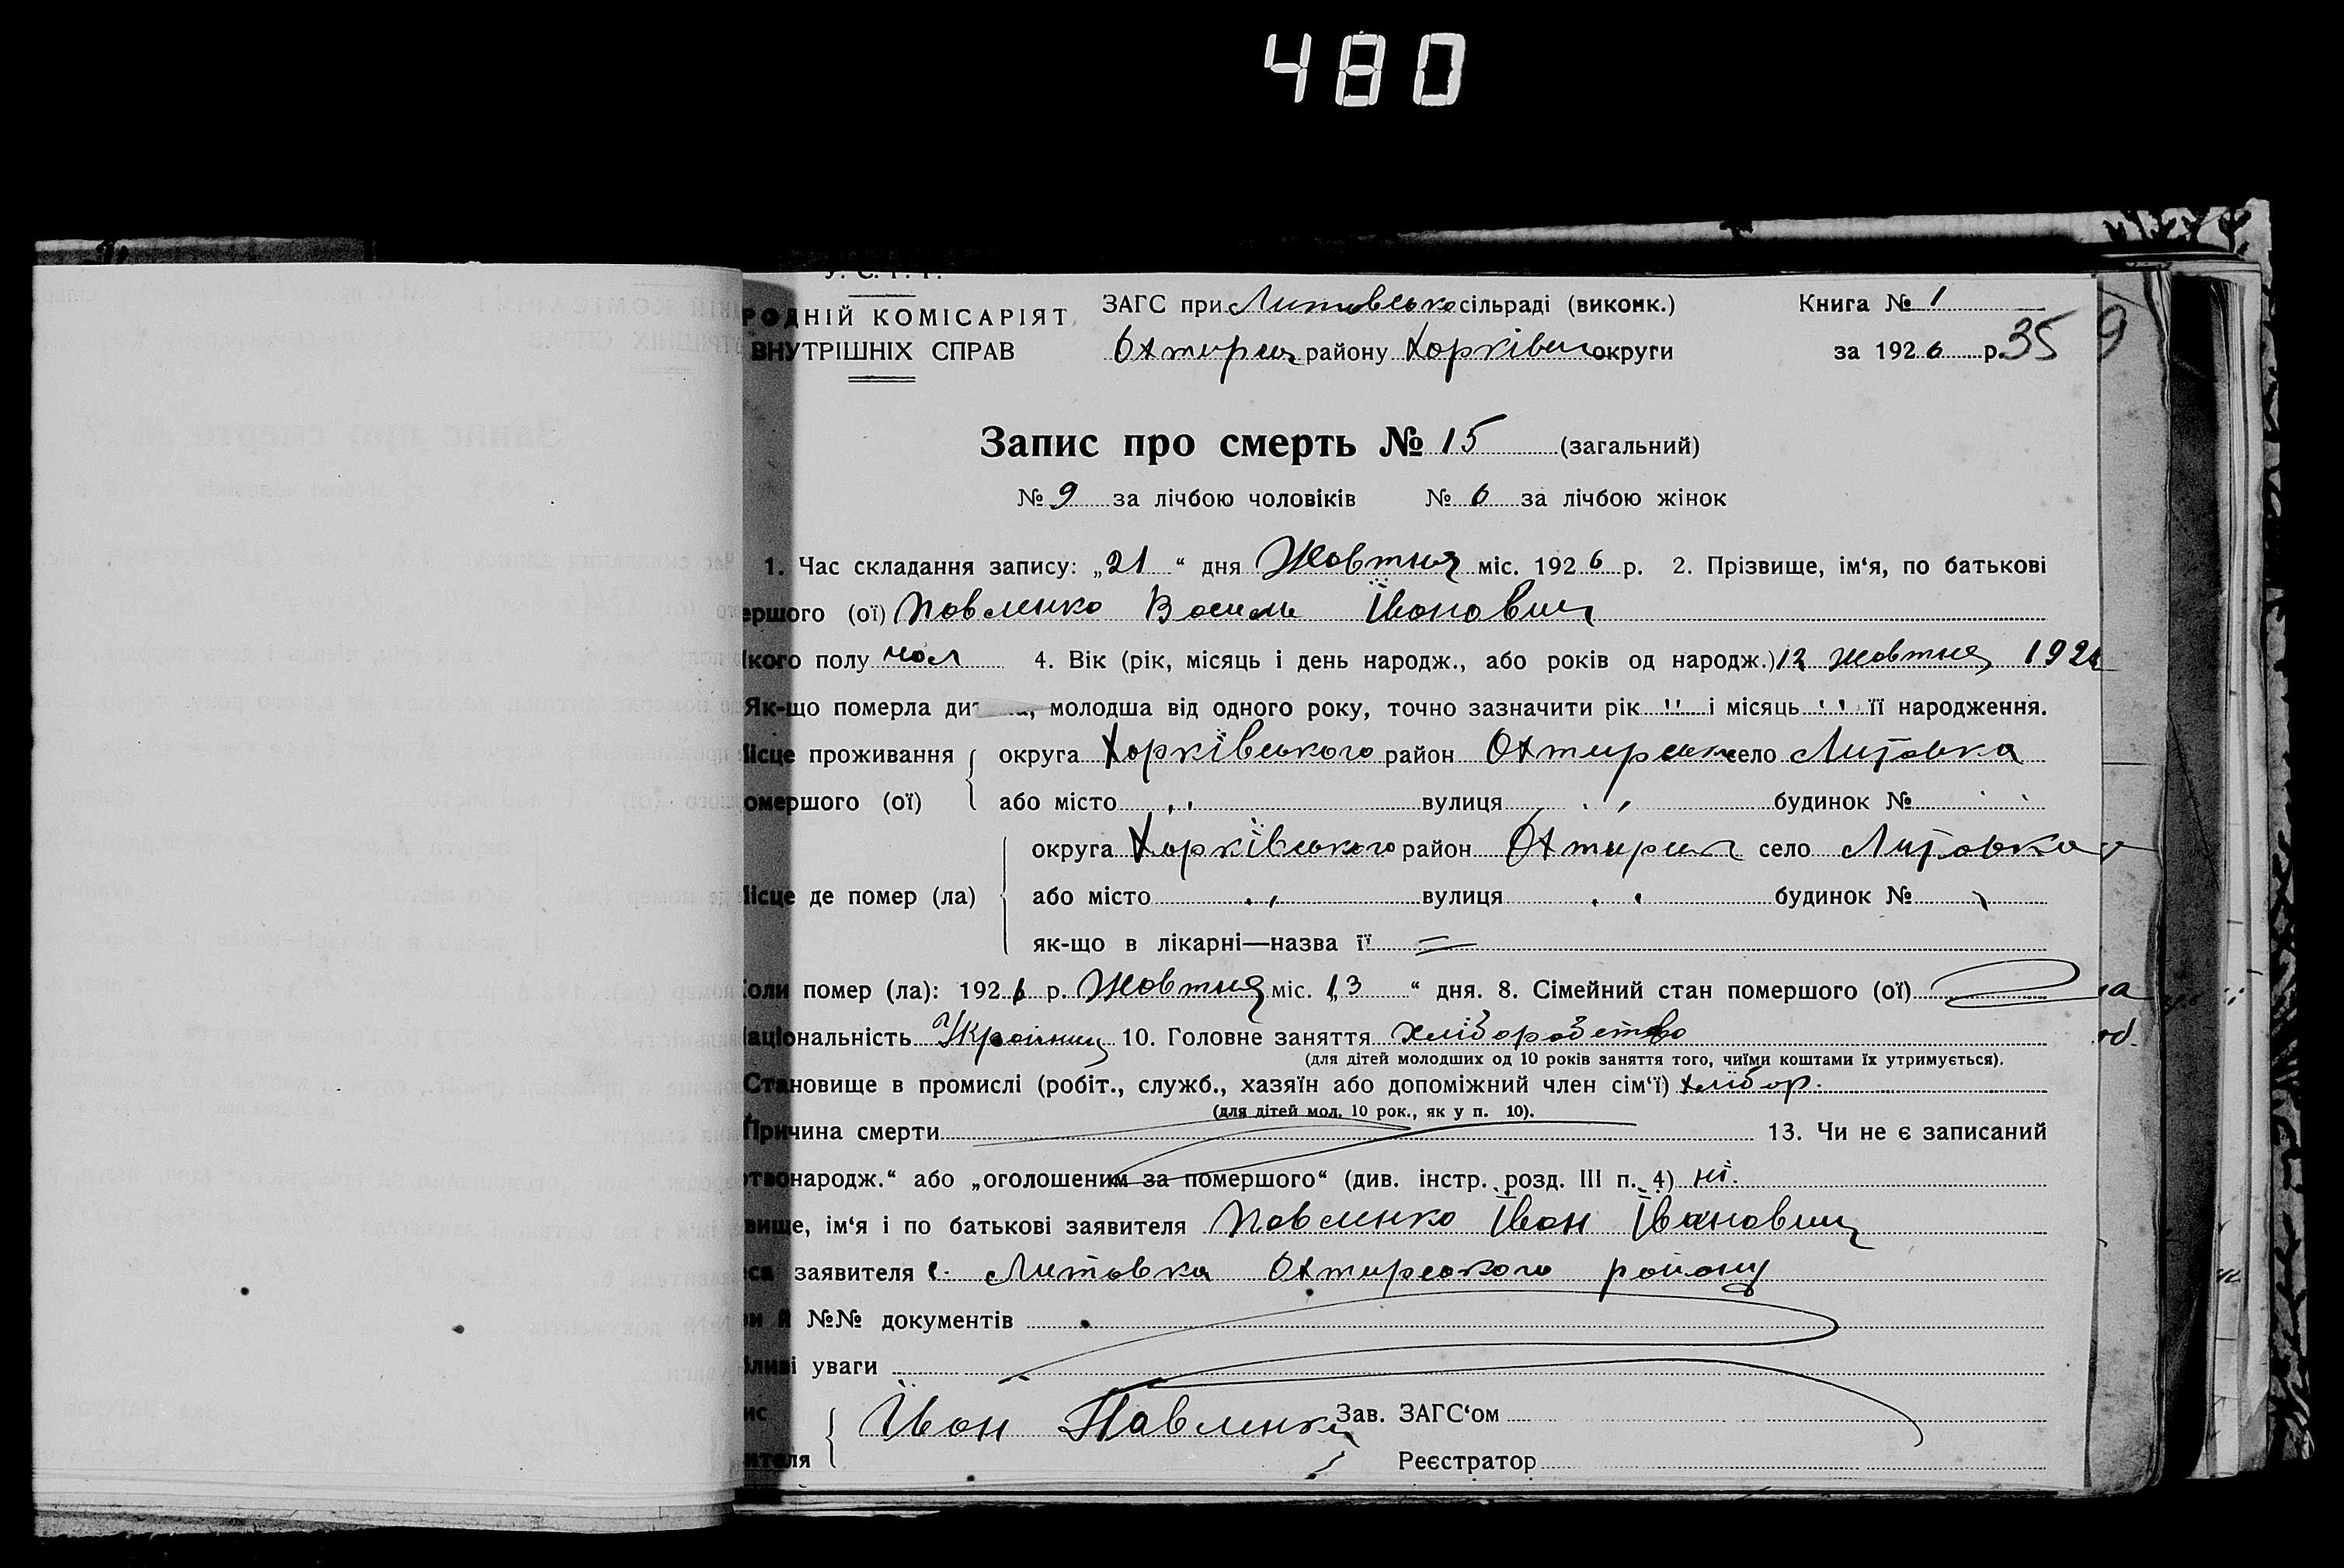 480
У. С. Р. Р.
РОДНІЙ КОМІСАРІЯТ
ВНУТРІШНІХ СПРАВ
ЗАГС при Литовсько сільраді (виконк.)
Охтирськ району Харківськ округи
Книга № 1
за 1926 р. 35 9
Запис про смерть № 15 (загальний)
№ 9 за лічбою чоловіків № 6 за лічбою жінок
1. Час складання запису: „21“ дня Жовтня міс. 1926 р. 2. Прізвище, ім‘я, по батькові
ершого (ої) Павленко Василь Їванович
кого полу чол 4. Вік (рік, місяць і день народж., або років од народж.) 12 жовтня 192
Як-що померла ди на, молодша від одного року, точно зазначити рік " і місяць " її народження.
ісце проживання округа Харківського район Охтирськ село Литовка
омершого (ої) або місто „ вулиця „ будинок № „
округа Харківського район Охтирськ село Литовка
ісце де помер (ла) або місто „ вулиця „ будинок №
як-що в лікарні—назва її =
оли помер (ла): 1926 р. Жовтня міс. „13“ дня. 8. Сімейний стан помершого (ої)
аціональність Україниц 10. Головне заняття хліборобство
(для дітей молодших од 10 років заняття того, чиїми коштами їх утримується).
Становище в промислі (робіт., служб., хазяїн або допоміжний член сім‘ї) хлібор.
(для дітей мол. 10 рок., як у п. 10).
Причина смерти 13. Чи не є записаний
ртвонародж.“ або „оголошеним за помершого“ (див. інстр. розд. III п. 4) ні.
вище, ім‘я і по батькові заявителя Павленко Їван Їванович
са заявителя с. Литовка Охтирського району
ви й №№ документів
ливі уваги
ис
ителя
Їван Павленко
Зав. ЗАГС‘ом
Реєстратор